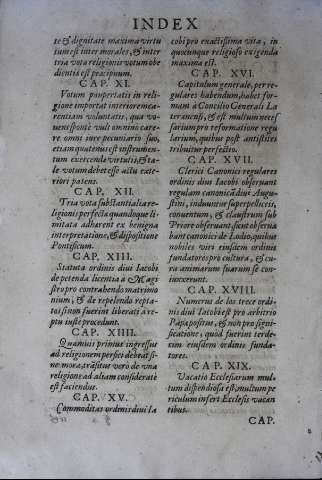 INDEX
te & dignitate maxima virtu
tum est inter morales, & inter
tria vota religionis votum obe
dientiæ est præcipuum.
CAP. XI.
Votum paupertatis in reli
gione importat interiorem ca-
rentiam voluntatis, qua vo
uens sponte vult omnino care
re omni iure pecuniario suo,
etiam quatenus est instrumen-
tum exercendæ virtutis, & ta-
le votum debet esse actu exte
riori patens.
CAP. XII.
Tria vota substantialia re
ligionis perfecta quandoque li
mitata adhærent ex benigna
interpretatione, & dispositione
Pontificum.
CAP. XIII.
Statuta ordinis diui Iacobi
de petenda licentia à Magi
stro pro contrahendo matrimo
nium, & de repelendo repta-
tos si non fuerint liberati à re
ptu iuste procedunt.
CAP. XIIII.
Quamuis primus ingressus
ad religionem perfici debeat si-
ne mora, trãsitus vero de vna
religione ad aliam consideratè
est faciendus.
CAP. XV.
Commoditas ordinis diui Ia
cobi pro exactissima vita, in
quocunque religioso exigenda
maxima est.
CAP. XVI.
Capitulum generale, per re-
gulares habendum, habet for-
mam à Concilio Generali La
teranensi, & est multum neces
sarium pro reformatione regu
larium, quibus post antistites
tribuitur perfectio.
CAP. XVII.
Clerici Canonici regulares
ordinis diui Iacobi obseruant
regulam canonicã diui Augu-
stini, induuntur superpelliceis,
conuentum, & claustrum sub
Priore obseruant, sicut obserua
bant canonici de Lodio, quibus
nobiles viri eiusdem ordinis
fundatores pro cultura, & cu
ra animarum suarum se con-
iunxerunt.
CAP. XVIII.
Numerus de los trece ordi-
nis diui Iacobi est pro arbitrio
Papæ positus, & non pro signi-
ficatione, quòd fuerint terde-
cim eiusdem ordinis funda-
tores.
CAP. XIX.
Vacatio Ecclesiarum mul-
tum dispendiosa est, multum pe
riculum infert Ecclesiis vacan
tibus.
CAP.